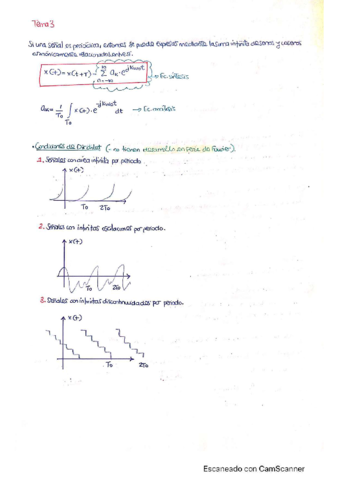 Tema 3
Si una señal es periódica, entonces se puede expresar mediante la suma infinita de senos y cosenos
armónicamente relacionados.
x(t) = x(t+T) = ∑ aₖ · e^{jkω₀t} → Ec. síntesis
aₖ = 1/T₀ ∫ x(t) · e^{-jkω₀t} dt → Ec. análisis
T₀
• Condiciones de Dirichlet (- no tienen desarrollo en serie de Fourier).
1. Señales con área infinita por periodo
x(t)
T₀ 2T₀
2. Señales con infinitas oscilaciones por periodo.
x(t)
T₀ 2T₀
3. Señales con infinitas discontinuidades por periodo.
x(t)
T₀ 2T₀
Escaneado con CamScanner